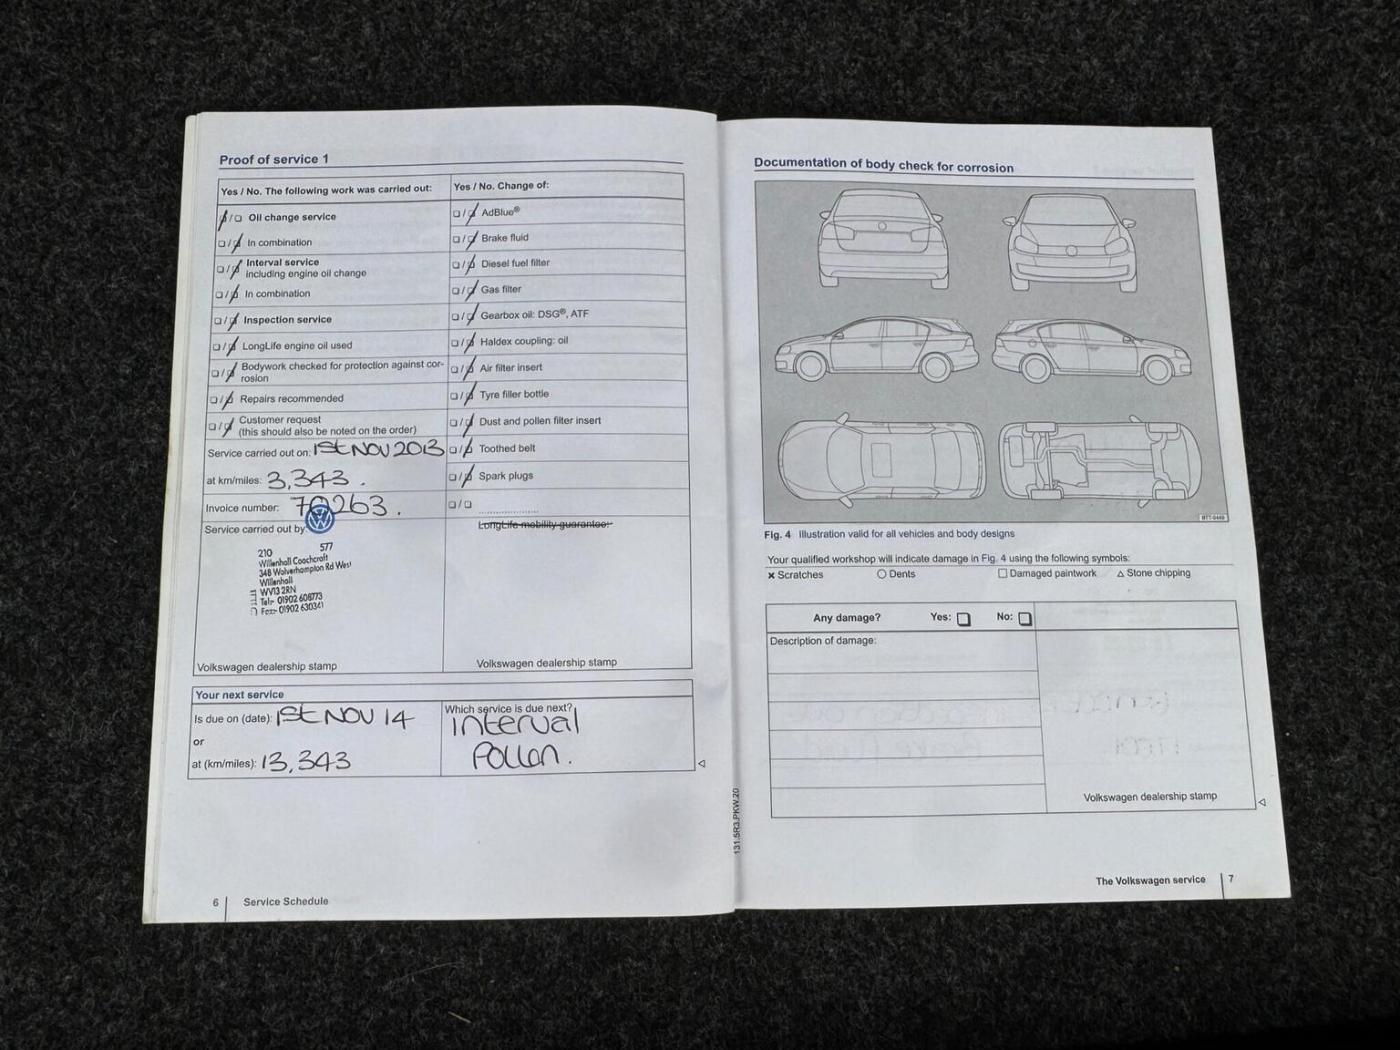 Proof of service 1
Yes / No. The following work was carried out:
Yes / No. Change of:
Oil change service
In combination
Interval service
including engine oil change
In combination
Inspection service
LongLife engine oil used
Bodywork checked for protection against cor-
rosion
Repairs recommended
Customer request
(this should also be noted on the order)
Service carried out on: 1st NOV 2013
at km/miles: 3,343.
Invoice number: 70263.
Service carried out by:
210 577
Willenhall Coachcraft
348 Wolverhampton Rd West
Willenhall
WV13 2RN
Tel:- 01902 608773
Fax:- 01902 630341
Volkswagen dealership stamp
AdBlue®
Brake fluid
Diesel fuel filter
Gas filter
Gearbox oil: DSG®, ATF
Haldex coupling: oil
Air filter insert
Tyre filler bottle
Dust and pollen filter insert
Toothed belt
Spark plugs
LongLife mobility guarantee:
Volkswagen dealership stamp
Your next service
Is due on (date): 1st NOV 14
or
at (km/miles): 13,343
Which service is due next?
Interval
Pollen.
6 Service Schedule
131.5R3.PKW.20
Documentation of body check for corrosion
BTT-0449
Fig. 4 Illustration valid for all vehicles and body designs
Your qualified workshop will indicate damage in Fig. 4 using the following symbols:
Scratches
Dents
Damaged paintwork
Stone chipping
Any damage? Yes: No:
Description of damage:
Volkswagen dealership stamp
The Volkswagen service 7